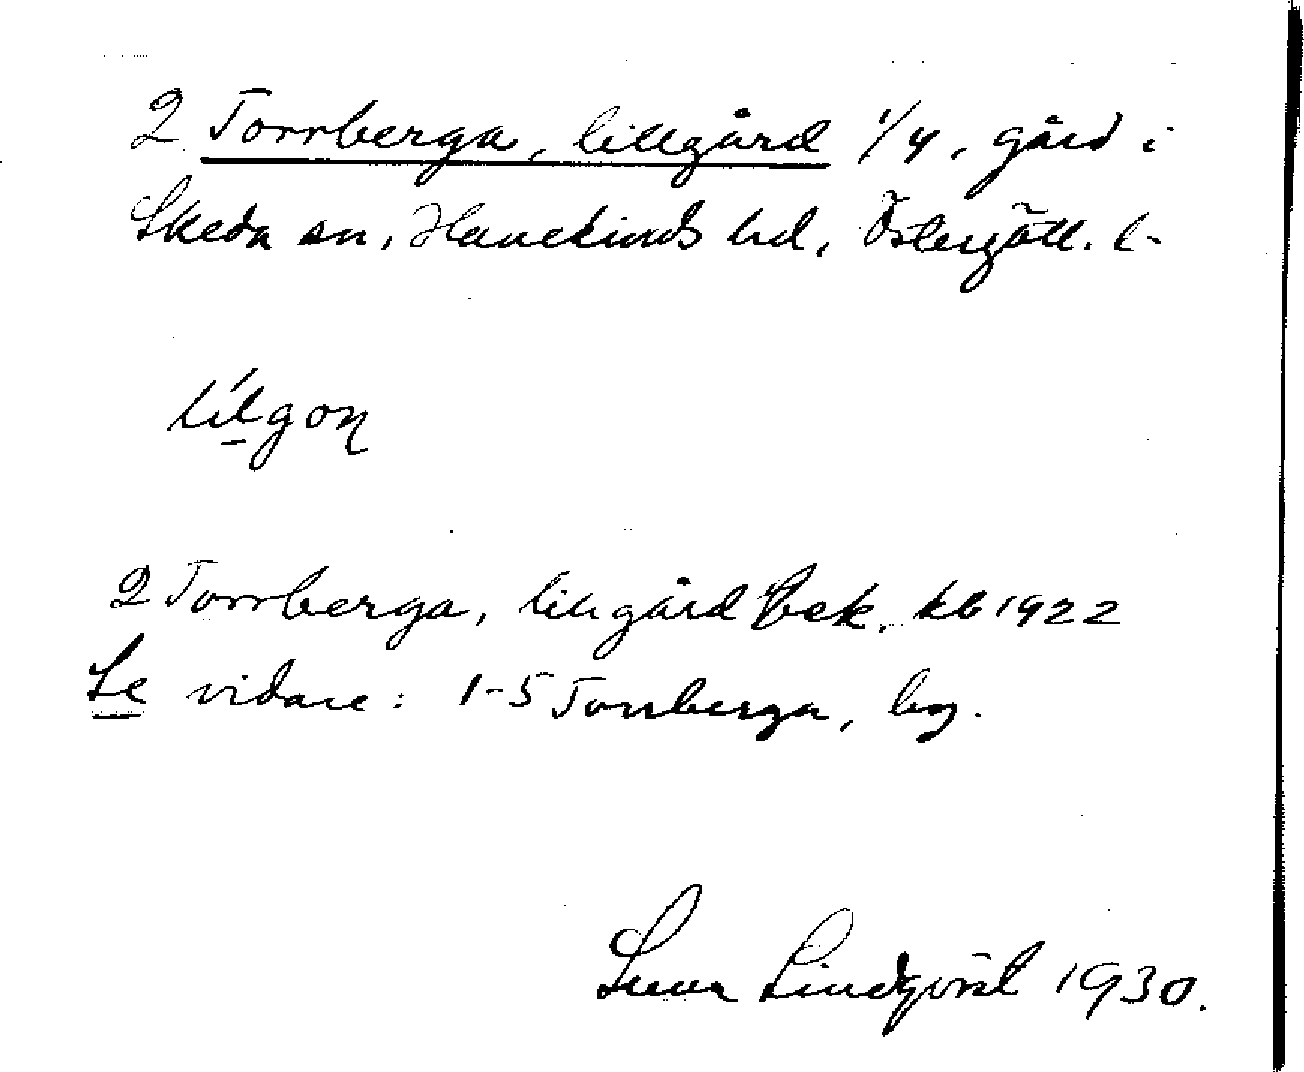 2 Torrberga, lillgård 1/4, gård i
Skeda sn, Hanekinds hd, Östergötl. l.
lílgon
2 Torrberga, lillgård jbek. kb 1922
Se vidare: 1-5 Torrberga, by.
Sven Lindqvist 1930.